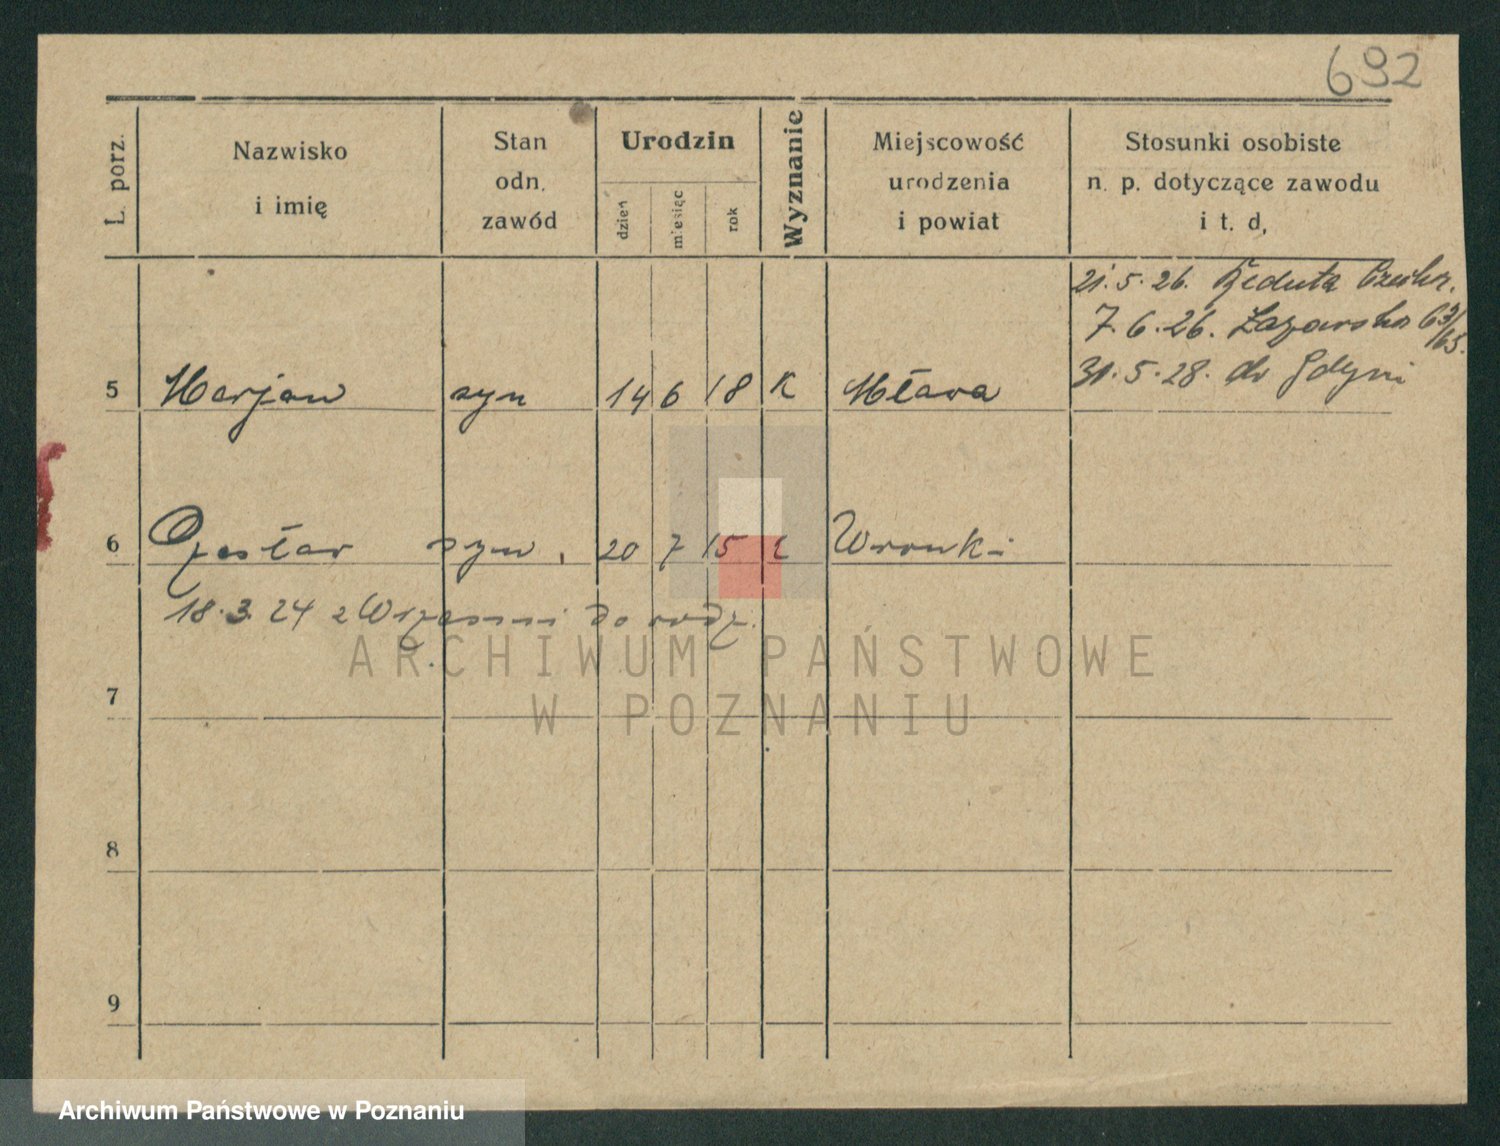 692
L. porz.
Nazwisko
i imię
Stan
odn.
zawód
Urodzin
dzień
miesiąc
rok
Wyznanie
Miejscowość
urodzenia
i powiat
Stosunki osobiste
n. p. dotyczące zawodu
i t. d,
21.5.26. Reduta
7.6.26. Łazarska 63/65.
31.5.28. do Gdyni
5 Marjan syn 14 6 18 K Mława
6 syn 20 7 15 k Wronki
18.3.24 z Wrześni do rodz.
7
8
9
ARCHIWUM PAŃSTWOWE
W POZNANIU
Archiwum Państwowe w Poznaniu